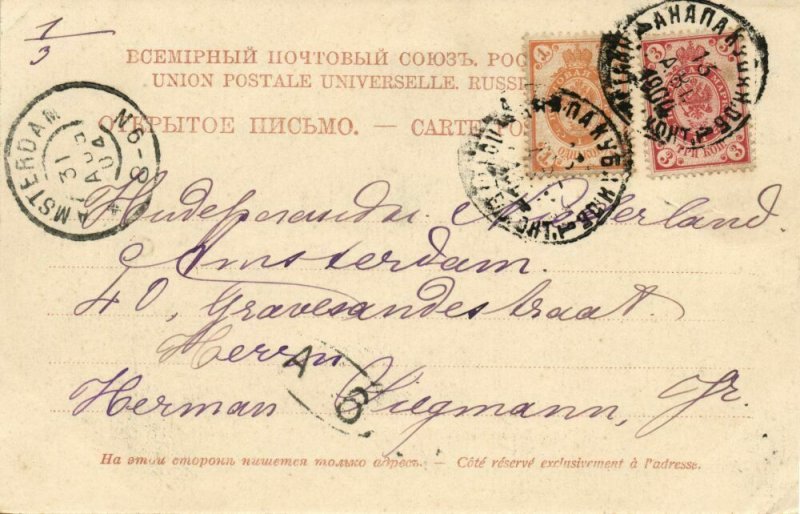 1/3
ВСЕМІРНЫЙ ПОЧТОВЫЙ СОЮЗЪ. РОС
UNION POSTALE UNIVERSELLE. RUSSI
ОТКРЫТОЕ ПИСЬМО. — CARTE POS
AMSTERDAM
31 AUG 04
8-9 N
1 1
3 3
ТРИ КОП.
АНАПА КУБАН. ОБ.
Нидерланды. Niederland.
Amsterdam.
40, Gravesandestraat.
Herrn
A 8
Herman Wiegmann, Jr.
На этой сторонѣ пишется только адресъ. — Côté réservé exclusivement à l'adresse.